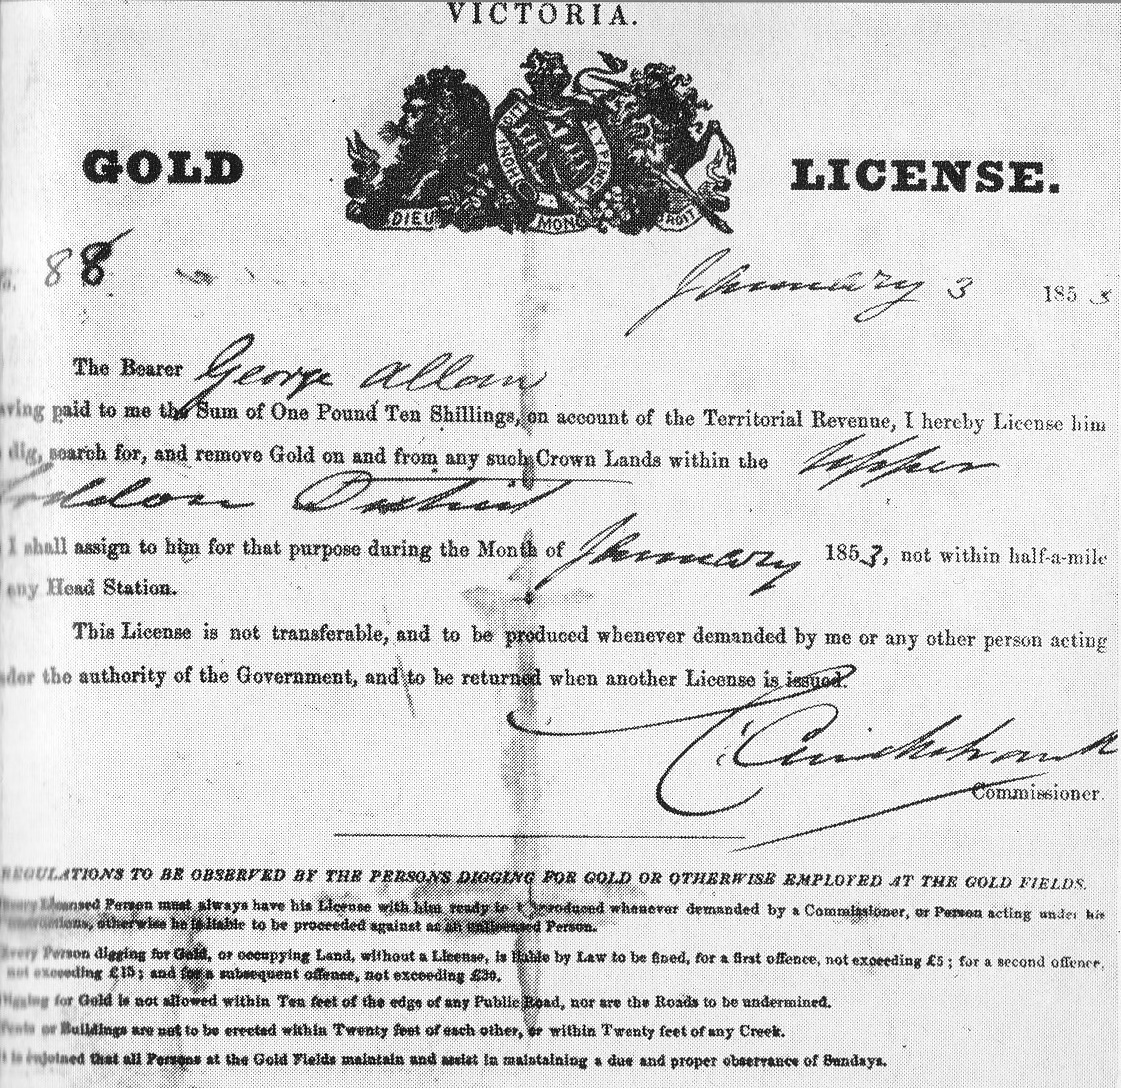 VICTORIA.
HONI SOIT QUI MAL Y PENSE
GOLD LICENSE.
DIEU MON DROIT
88 January 3 1853
The Bearer George Allan
aving paid to me the Sum of One Pound Ten Shillings, on account of the Territorial Revenue, I hereby License him
dig, search for, and remove Gold on and from any such Crown Lands within the Upper
oddon District
I shall assign to him for that purpose during the Month of January 1853, not within half-a-mile
any Head Station.
This License is not transferable, and to be produced whenever demanded by me or any other person acting
nder the authority of the Government, and to be returned when another License is issued.
Cruikshank
Commissioner.
REGULATIONS TO BE OBSERVED BY THE PERSONS DIGGING FOR GOLD OR OTHERWISE EMPLOYED AT THE GOLD FIELDS.
Every Licensed Person must always have his License with him ready to be produced whenever demanded by a Commissioner, or Person acting under his
instructions, otherwise he is liable to be proceeded against as an unlicensed Person.
Every Person digging for Gold, or occupying Land, without a License, is liable by Law to be fined, for a first offence, not exceeding £5; for a second offence,
not exceeding £15; and for a subsequent offence, not exceeding £30.
Digging for Gold is not allowed within Ten feet of the edge of any Public Road, nor are the Roads to be undermined.
Tents or Buildings are not to be erected within Twenty feet of each other, or within Twenty feet of any Creek.
It is enjoined that all Persons at the Gold Fields maintain and assist in maintaining a due and proper observance of Sundays.